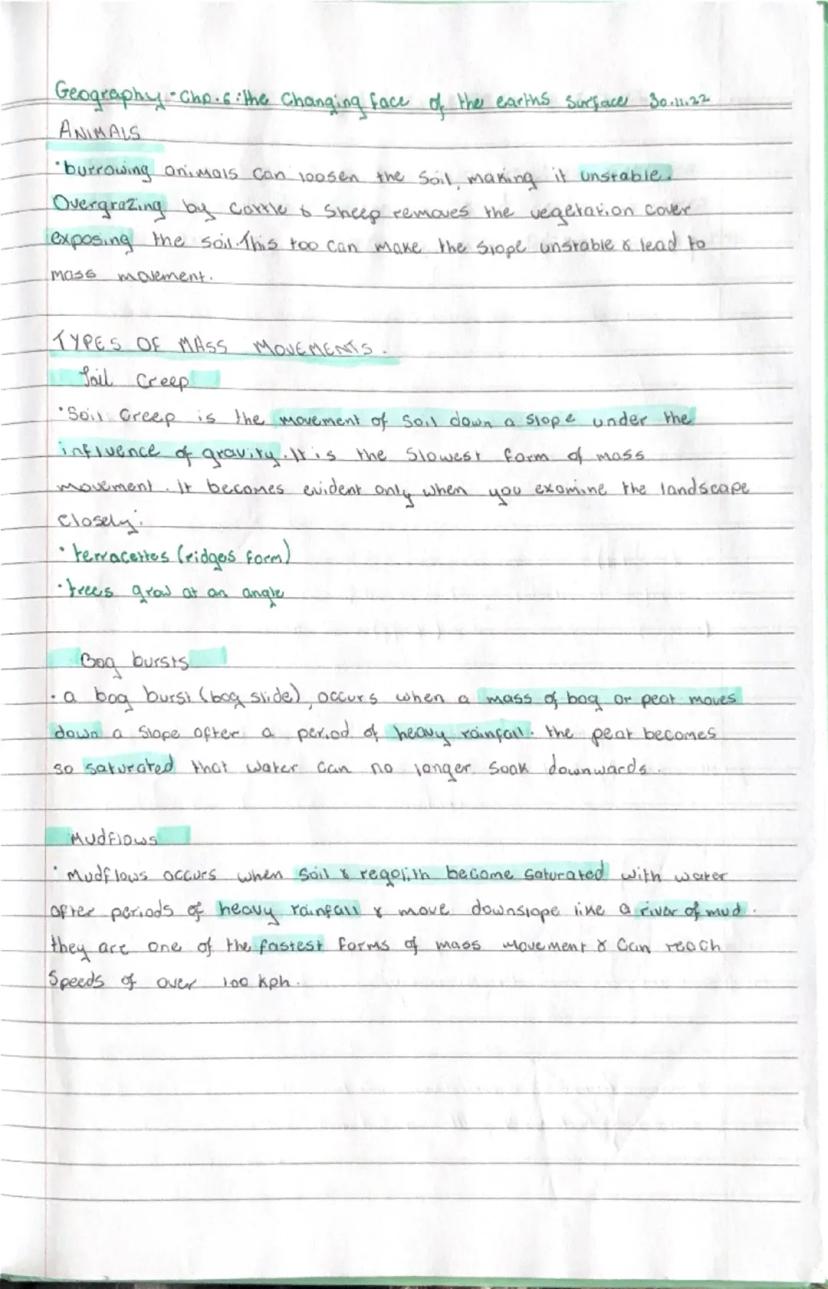 Geography - Chp. 6: the Changing face of the earths surface 30.11.22
ANIMALS
• burrowing animals can loosen the soil, making it unstable.
Overgrazing by Cattle & Sheep removes the vegetation cover
exposing the soil. This too can make the slope unstable & lead to
mass movement.
TYPES OF MASS MOVEMENTS.
Soil Creep
• Soil Creep is the movement of soil down a slope under the
influence of gravity. It is the slowest form of mass
movement. It becomes evident only when you examine the landscape
closely:
• terracettes (ridges form)
• trees grow at an angle
Bog bursts
• a bog burst (bog slide), occurs when a mass of bog or peat moves
down a slope after a period of heavy rainfall. the peat becomes
so saturated that water can no longer soak downwards.
Mudflows
• Mudflows occurs when soil & regolith become saturated with water
after periods of heavy rainfall & move downslope like a river of mud.
they are one of the fastest forms of mass movement & can reach
speeds of over 100 kph.